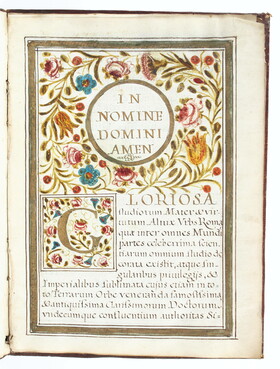 IN
NOMINE
DOMINI
AMEN
GLORIOSA
studiorum Mater & vir-
tutum Almæ Vrbs Roma
quæ inter omnes Mundi
partes celeberrima scien
tiarum omnium studio de
corata existit, atque sin-
gularibus privilegijs, &
Imperialibus sublimata cuius etiam in to
to Terrarum Orbe veneranda famosissima
& antiquissima Clarissimorum Doctorum,
undecumque confluentium authoritas &